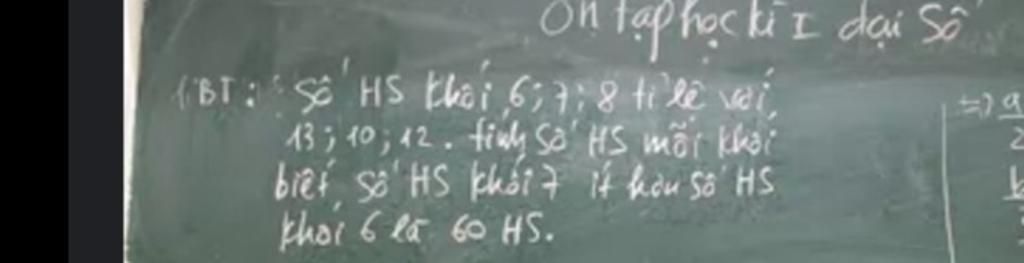 Ôn tập học kì I đại Số
BT: Số HS khối 6; 7; 8 tỉ lệ với
13; 10; 12. tính số HS mỗi khối
biết số HS khối 7 ít hơn số HS
khối 6 là 60 HS.
=) a
2
b